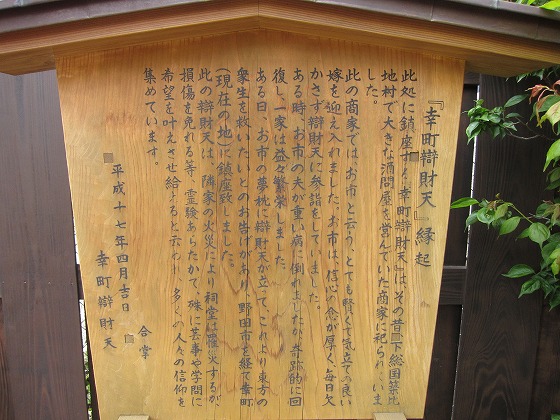 『幸町辯財天』縁起
此処に鎮座す 幸町辯財天』は、その昔 下総国築比
地村で大きな酒問屋を営んでいた商家に祀られ いま
した。
此の商家では、お市と云う、とても賢くて気立ての良い
嫁を迎え入れました。お市は、信心の念が厚く毎日欠
かさず辯財天に参詣をしていました。
ある時、お市の夫が重い病に倒れ したが奇跡的に回
復し、一家は益々繁栄しました。
ある日、お市の夢枕に辯財天が立って、これより東方の
衆生を救いたいとのお告げがあり、野田市を経て幸町
(現在の地)に鎮座致しました。
此の辯財天は、隣家の火災により祠堂は罹 火するが、
損傷を免れる等、霊験あらたかで、殊に芸事や学問に
希望を叶えさせ給 ると云 多くの人々の信仰を
集めています。
合掌
平成十七年四月吉日
幸町辯財天